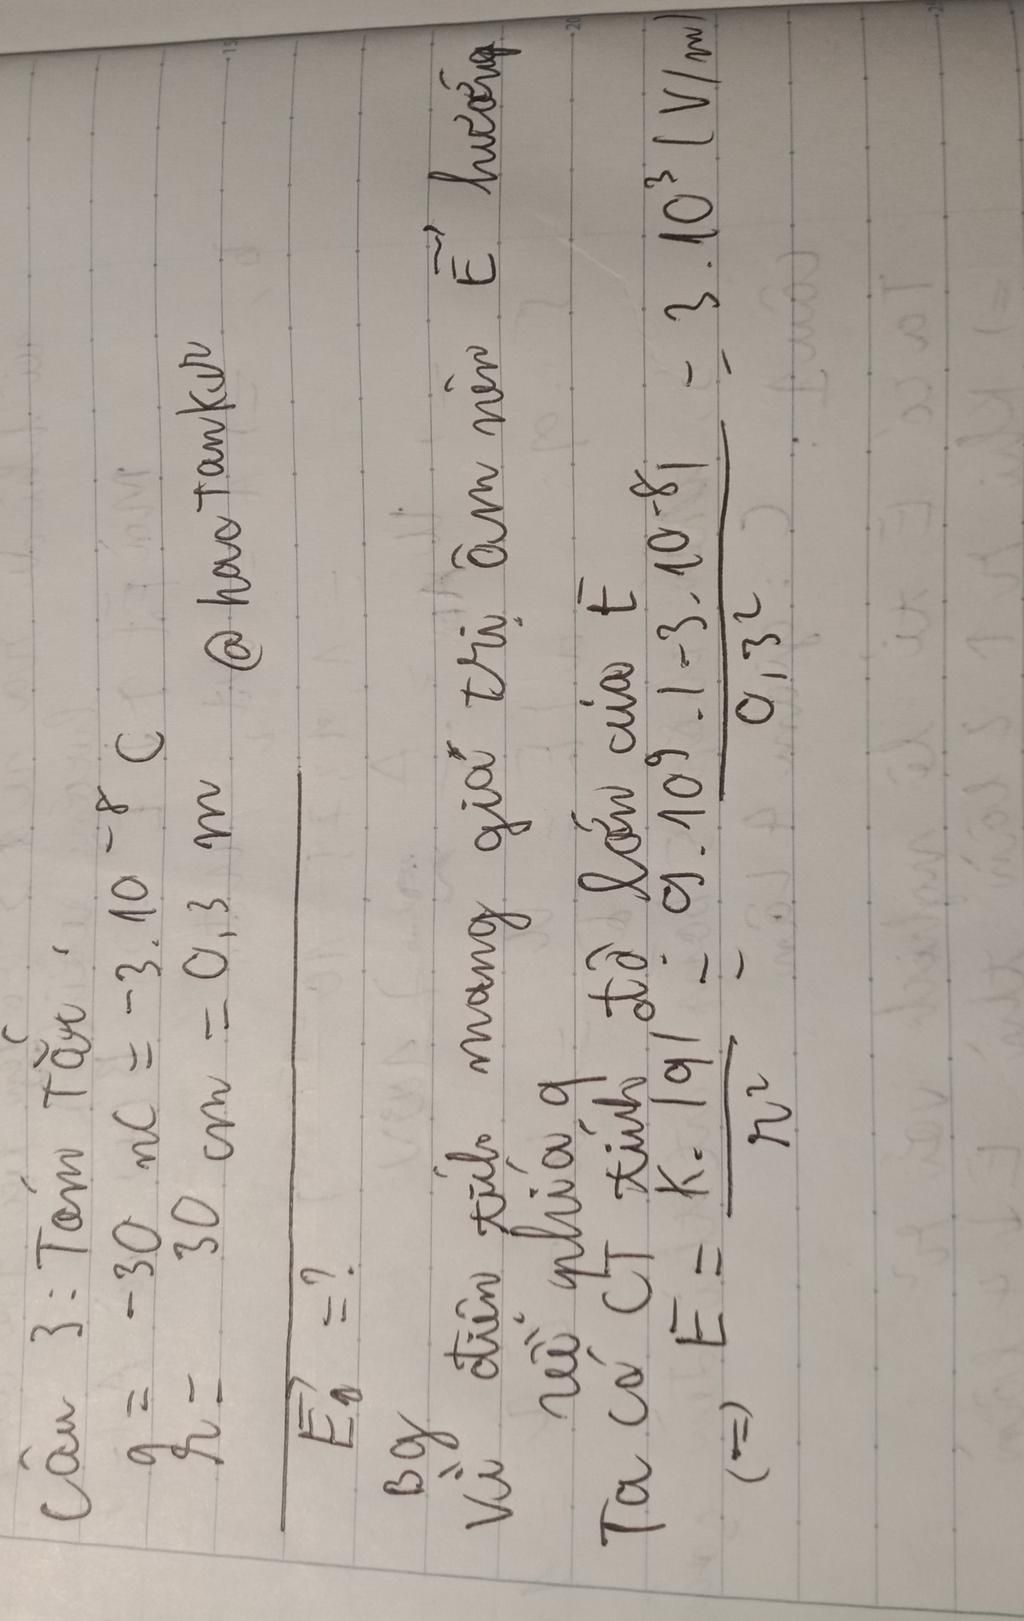 Câu 3: Tóm Tắt
q = -30 nC = -3.10⁻⁸ C
r = 30 cm = 0,3 m @haoTankur
E⃗ = ?
BG
Vì điện tích mang giá trị âm nên E⃗ hướng
về phía q
Ta có CT tính độ lớn của E
(=) E = K.|q| / r² = 9.10⁹.|-3.10⁻⁸| / 0,3² = 3.10³ (V/m)